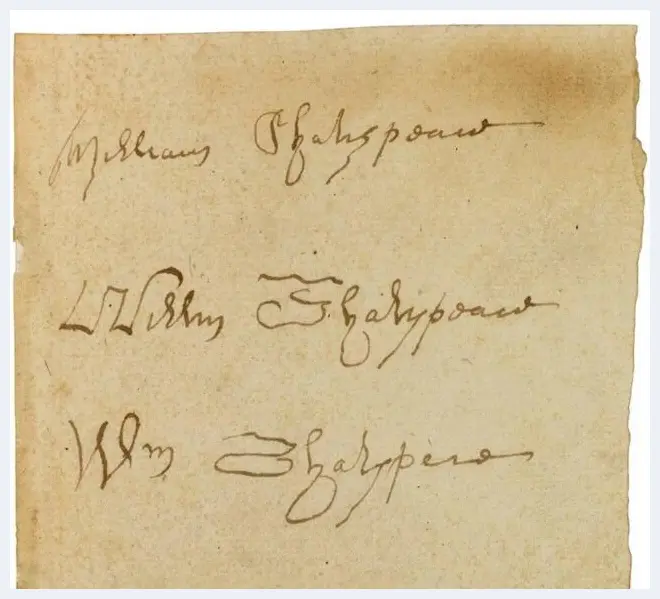 William Shakspeare
Willm Shakspeare
Wm Shakspere